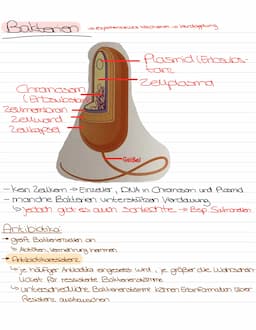 Bakterien → experimentelle Mechanismen →
Plasmid (Erbsubs-
tanz)
Zellplasma
Chromosom
(Erbsubstanz)
Zellmembran
Zellwand
Zellkapsel
Geißel
- kein Zellkern → Einzeller, DNA in Chromosom und Plasmid
- manche Bakterien unterstützen Verdauung
↳ jedoch gibt es auch schlechte → Bsp. Salmonellen
Antibiotika:
→ greift Bakterienzellen an
↳ Abtöten, Vermehrung hemmen
→ Antibiotikaresistenz:
↳ je häufiger Antibiotika eingesetzt wird, je größer die Wahrschein-
lichkeit für resistente Bakterienstämme
↳ unterschiedliche Bakterienstämme können Erbinformation über
Resistenz austauschen